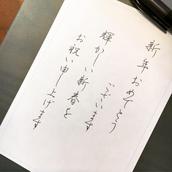 新年おめでとう
ございます
輝かしい新春を
お祝い申し上げます